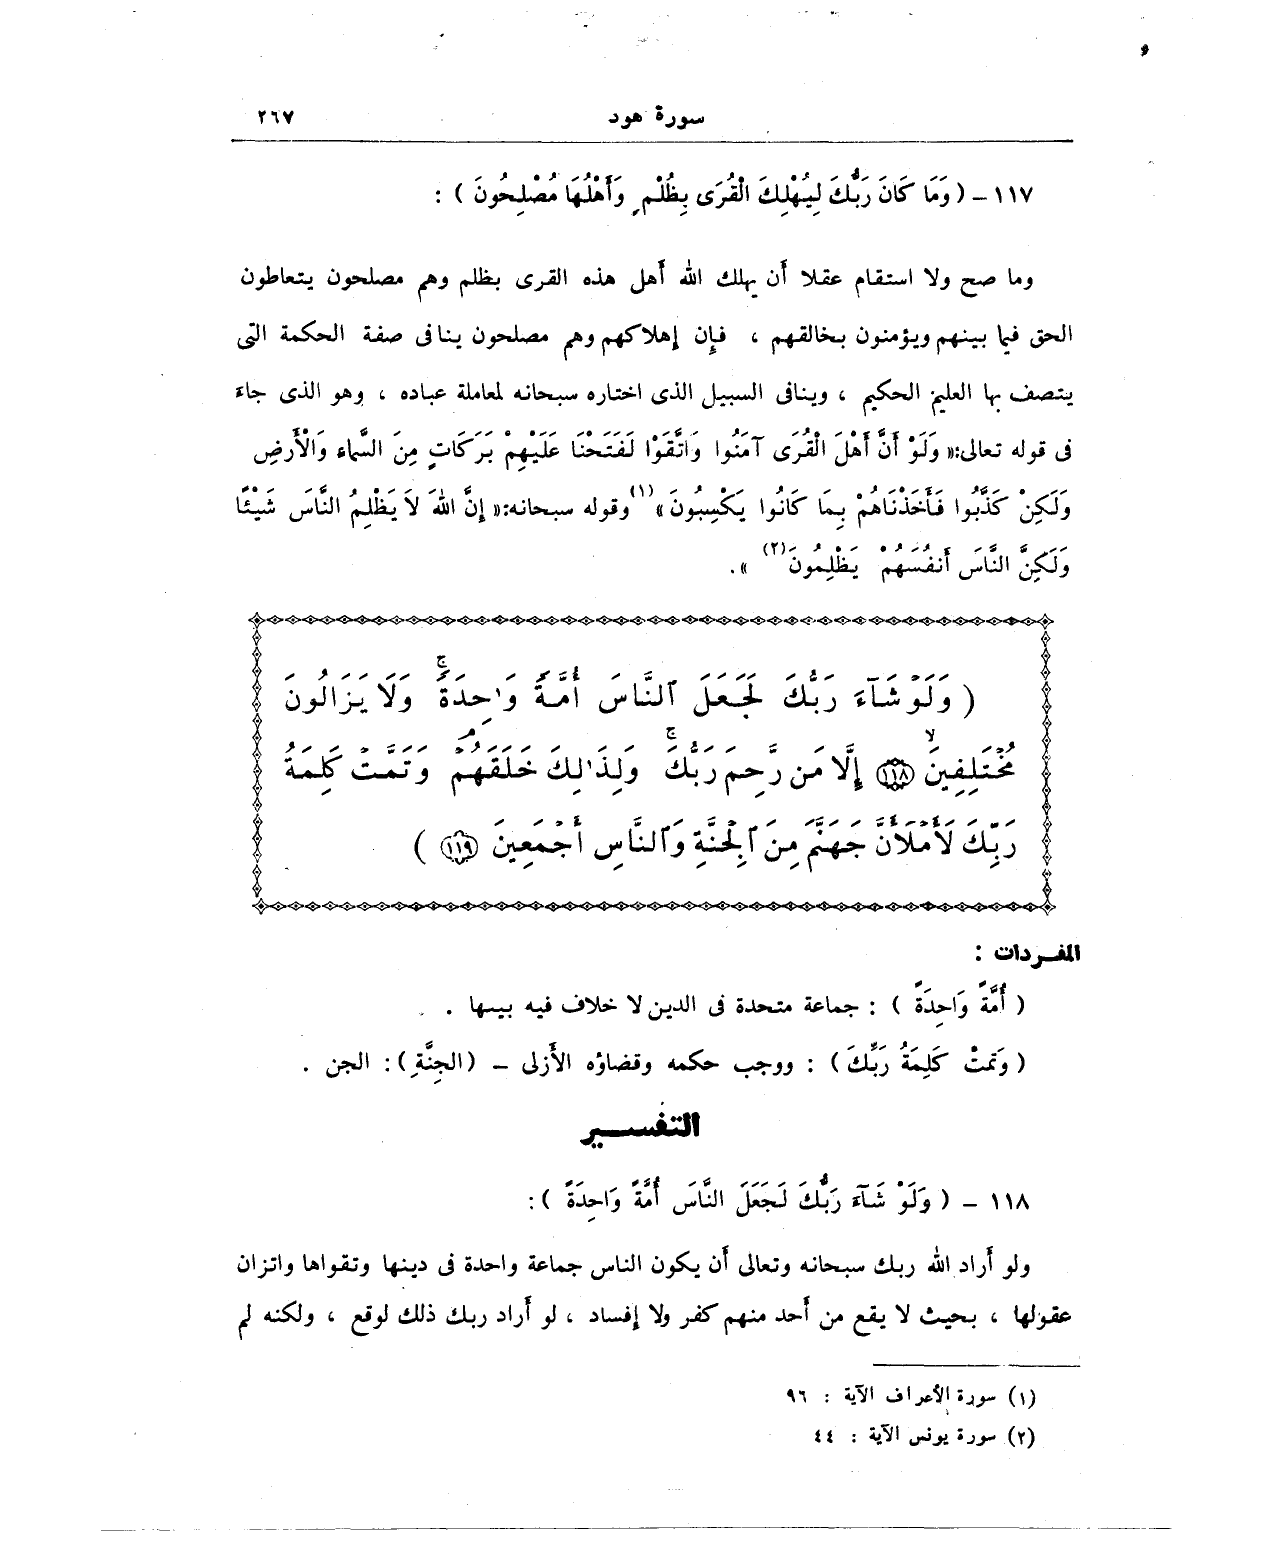 سورة هود ٢٦٧
١١٧ – ( وَمَا كَانَ رَبُّكَ لِيُهْلِكَ الْقُرَى بِظُلْمٍ وَأَهْلُهَا مُصْلِحُونَ ) :
وما صح ولا استقام عقلا أن يهلك الله أهل هذه القرى بظلم وهم مصلحون يتعاطون
الحق فيما بينهم ويؤمنون بخالقهم ، فإن إهلاكهم وهم مصلحون ينافى صفة الحكمة التى
يتصف بها العليم الحكيم ، وينافى السبيل الذى اختاره سبحانه لمعاملة عباده ، وهو الذى جاء
فى قوله تعالى:« وَلَوْ أَنَّ أَهْلَ الْقُرَى آمَنُوا وَاتَّقَوْا لَفَتَحْنَا عَلَيْهِمْ بَرَكَاتٍ مِنَ السَّمَاء وَالْأَرْضِ
وَلَكِنْ كَذَّبُوا فَأَخَذْنَاهُمْ بِمَا كَانُوا يَكْسِبُونَ »(١) وقوله سبحانه:« إِنَّ اللهَ لَا يَظْلِمُ النَّاسَ شَيْئًا
وَلَكِنَّ النَّاسَ أَنفُسَهُمْ يَظْلِمُونَ(٢) ».
( وَلَوْ شَآءَ رَبُّكَ لَجَعَلَ ٱلنَّاسَ أُمَّةً وَٰحِدَةً ۖ وَلَا يَزَالُونَ
مُخْتَلِفِينَ ﴿١١٨﴾ إِلَّا مَن رَّحِمَ رَبُّكَ ۚ وَلِذَٰلِكَ خَلَقَهُمْ ۗ وَتَمَّتْ كَلِمَةُ
رَبِّكَ لَأَمْلَأَنَّ جَهَنَّمَ مِنَ ٱلْجِنَّةِ وَٱلنَّاسِ أَجْمَعِينَ ﴿١١٩﴾ )
المفردات :
( أُمَّةً وَاحِدَةً ) : جماعة متحدة فى الدين لا خلاف فيه بينها .
( وَتَمَّتْ كَلِمَةُ رَبِّكَ ) : ووجب حكمه وقضاؤه الأَزلى – (الجِنَّةِ) : الجن .
التفسير
١١٨ – ( وَلَوْ شَآءَ رَبُّكَ لَجَعَلَ النَّاسَ أُمَّةً وَاحِدَةً ) :
ولو أراد الله ربك سبحانه وتعالى أن يكون الناس جماعة واحدة فى دينها وتقواها واتزان
عقولها ، بحيث لا يقع من أحد منهم كفر ولا إفساد ، لو أراد ربك ذلك لوقع ، ولكنه لم
(١) سورة الأعراف الآية : ٩٦
(٢) سورة يونس الآية : ٤٤